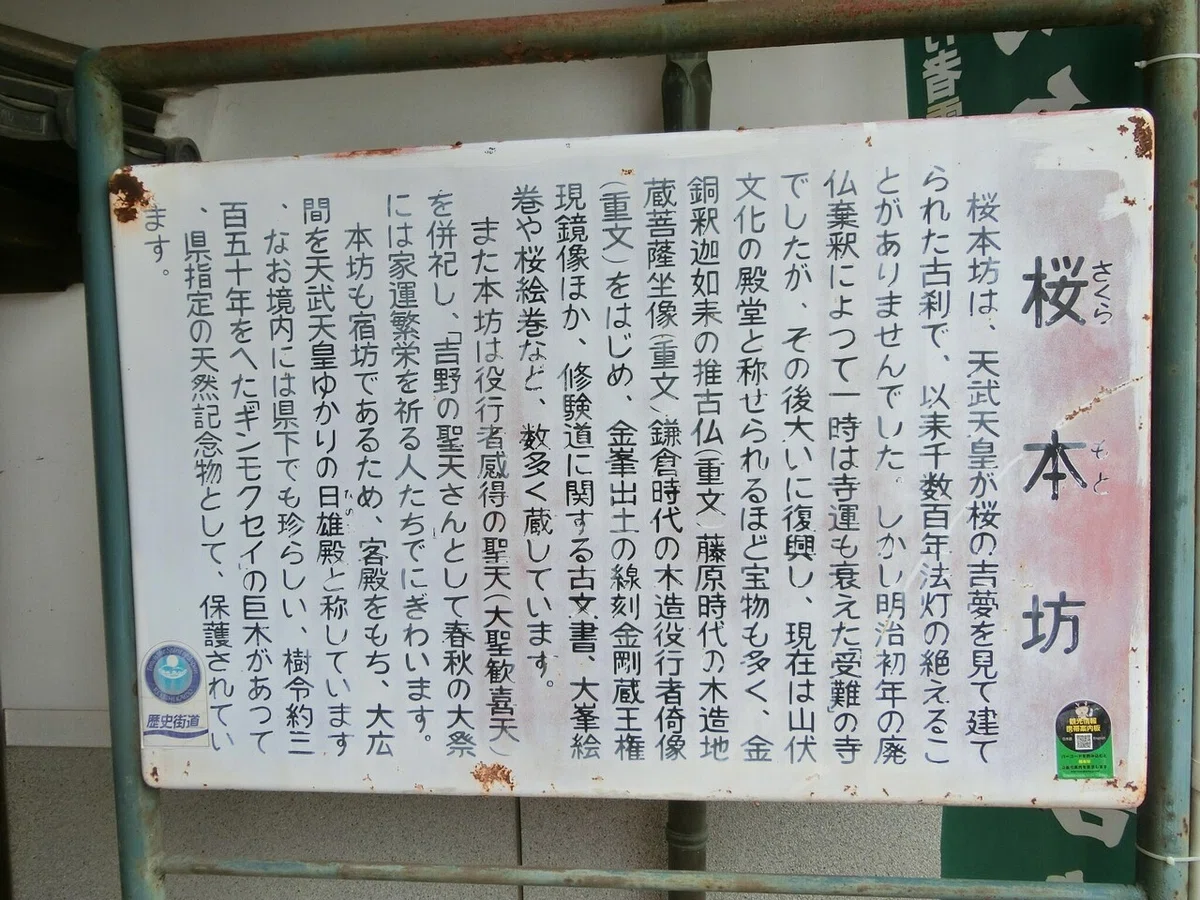 桜本坊
さくらもと
桜本坊は、天武天皇が桜の吉夢を見て建て
られた古刹で、以来千数百年法灯の絶えるこ
とがありませんでした。しかし明治初年の廃
仏棄釈によつて一時は寺運も衰えた「受難の寺
でしたが、その後大いに復興し、現在は山伏
文化の殿堂と称せられるほど宝物も多く、金
銅釈迦如来の推古仏(重文)藤原時代の木造地
蔵菩薩坐像(重文)鎌倉時代の木造役行者倚像
(重文)をはじめ、金峯出土の線刻金剛蔵王権
現鏡像ほか、修験道に関する古文書、大峯絵
巻や桜絵巻など、数多く蔵しています。
また本坊は役行者感得の聖天(大聖歓喜天)
を併祀し、「吉野の聖天さん」として春秋の大祭
には家運繁栄を祈る人たちでにぎわいます。
本坊も宿坊であるため、客殿をもち、大広
間を天武天皇ゆかりの日雄殿と称しています
、なお境内には県下でも珍らしい、樹令約三
百五十年をへた「ギンモクセイ」の巨木があって
、県指定の天然記念物として、保護されてい
ます。
歴史街道
観光情報
携帯案内板